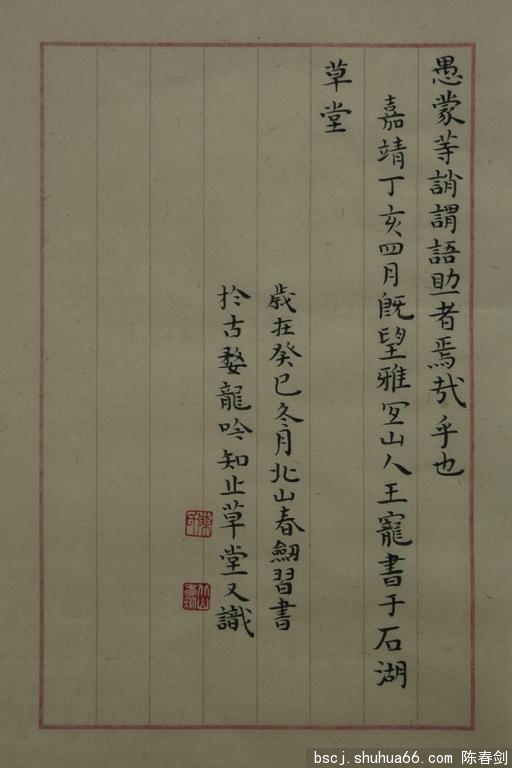 愚蒙等誚謂語助者焉哉乎也
嘉靖丁亥四月旣望雅宜山人王寵書于石湖
草堂
歲在癸巳冬月北山春劒習書
於古婺龍吟知止草堂又識
bscj.shuhua66.com 陈春剑